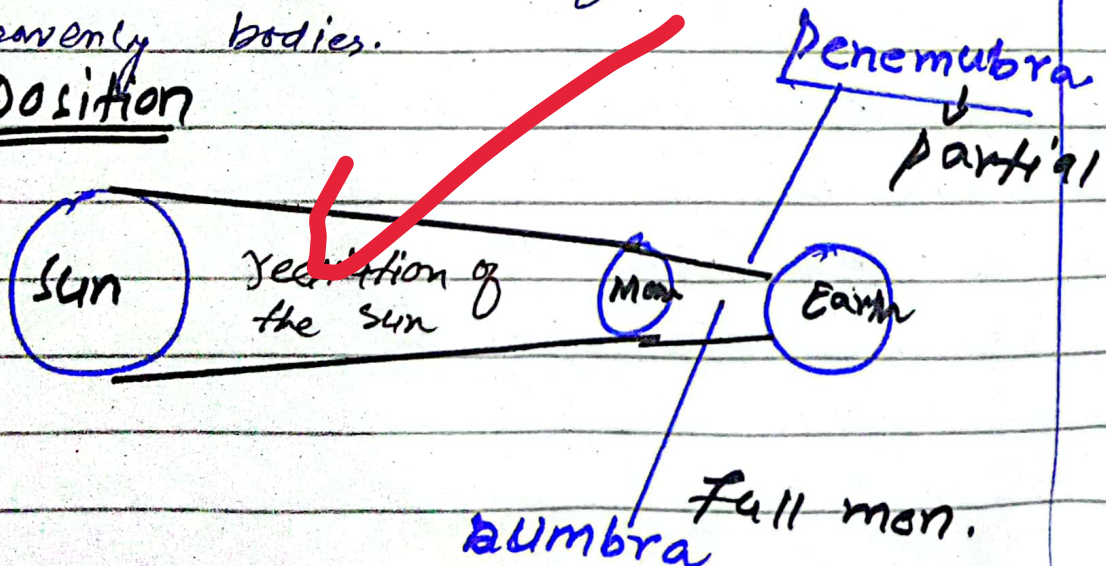 eavenly bodies.
Position
Penemubra
partial
Sun
of
the sun
Moon
Earth
aumbra
Full mon.